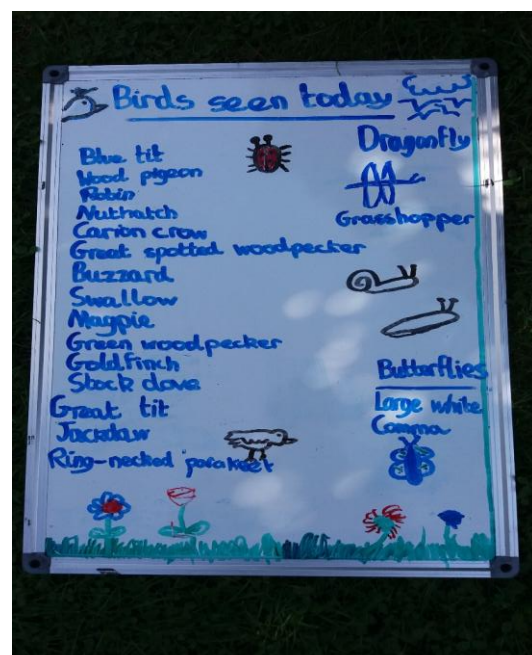 Birds seen today
Blue tit
Wood pigeon
Robin
Nuthatch
Carrion crow
Great spotted woodpecker
Buzzard
Swallow
Magpie
Green woodpecker
Goldfinch
Stock dove
Great tit
Jackdaw
Ring-necked parakeet
Dragonfly
Grasshopper
Butterflies
Large white
Comma